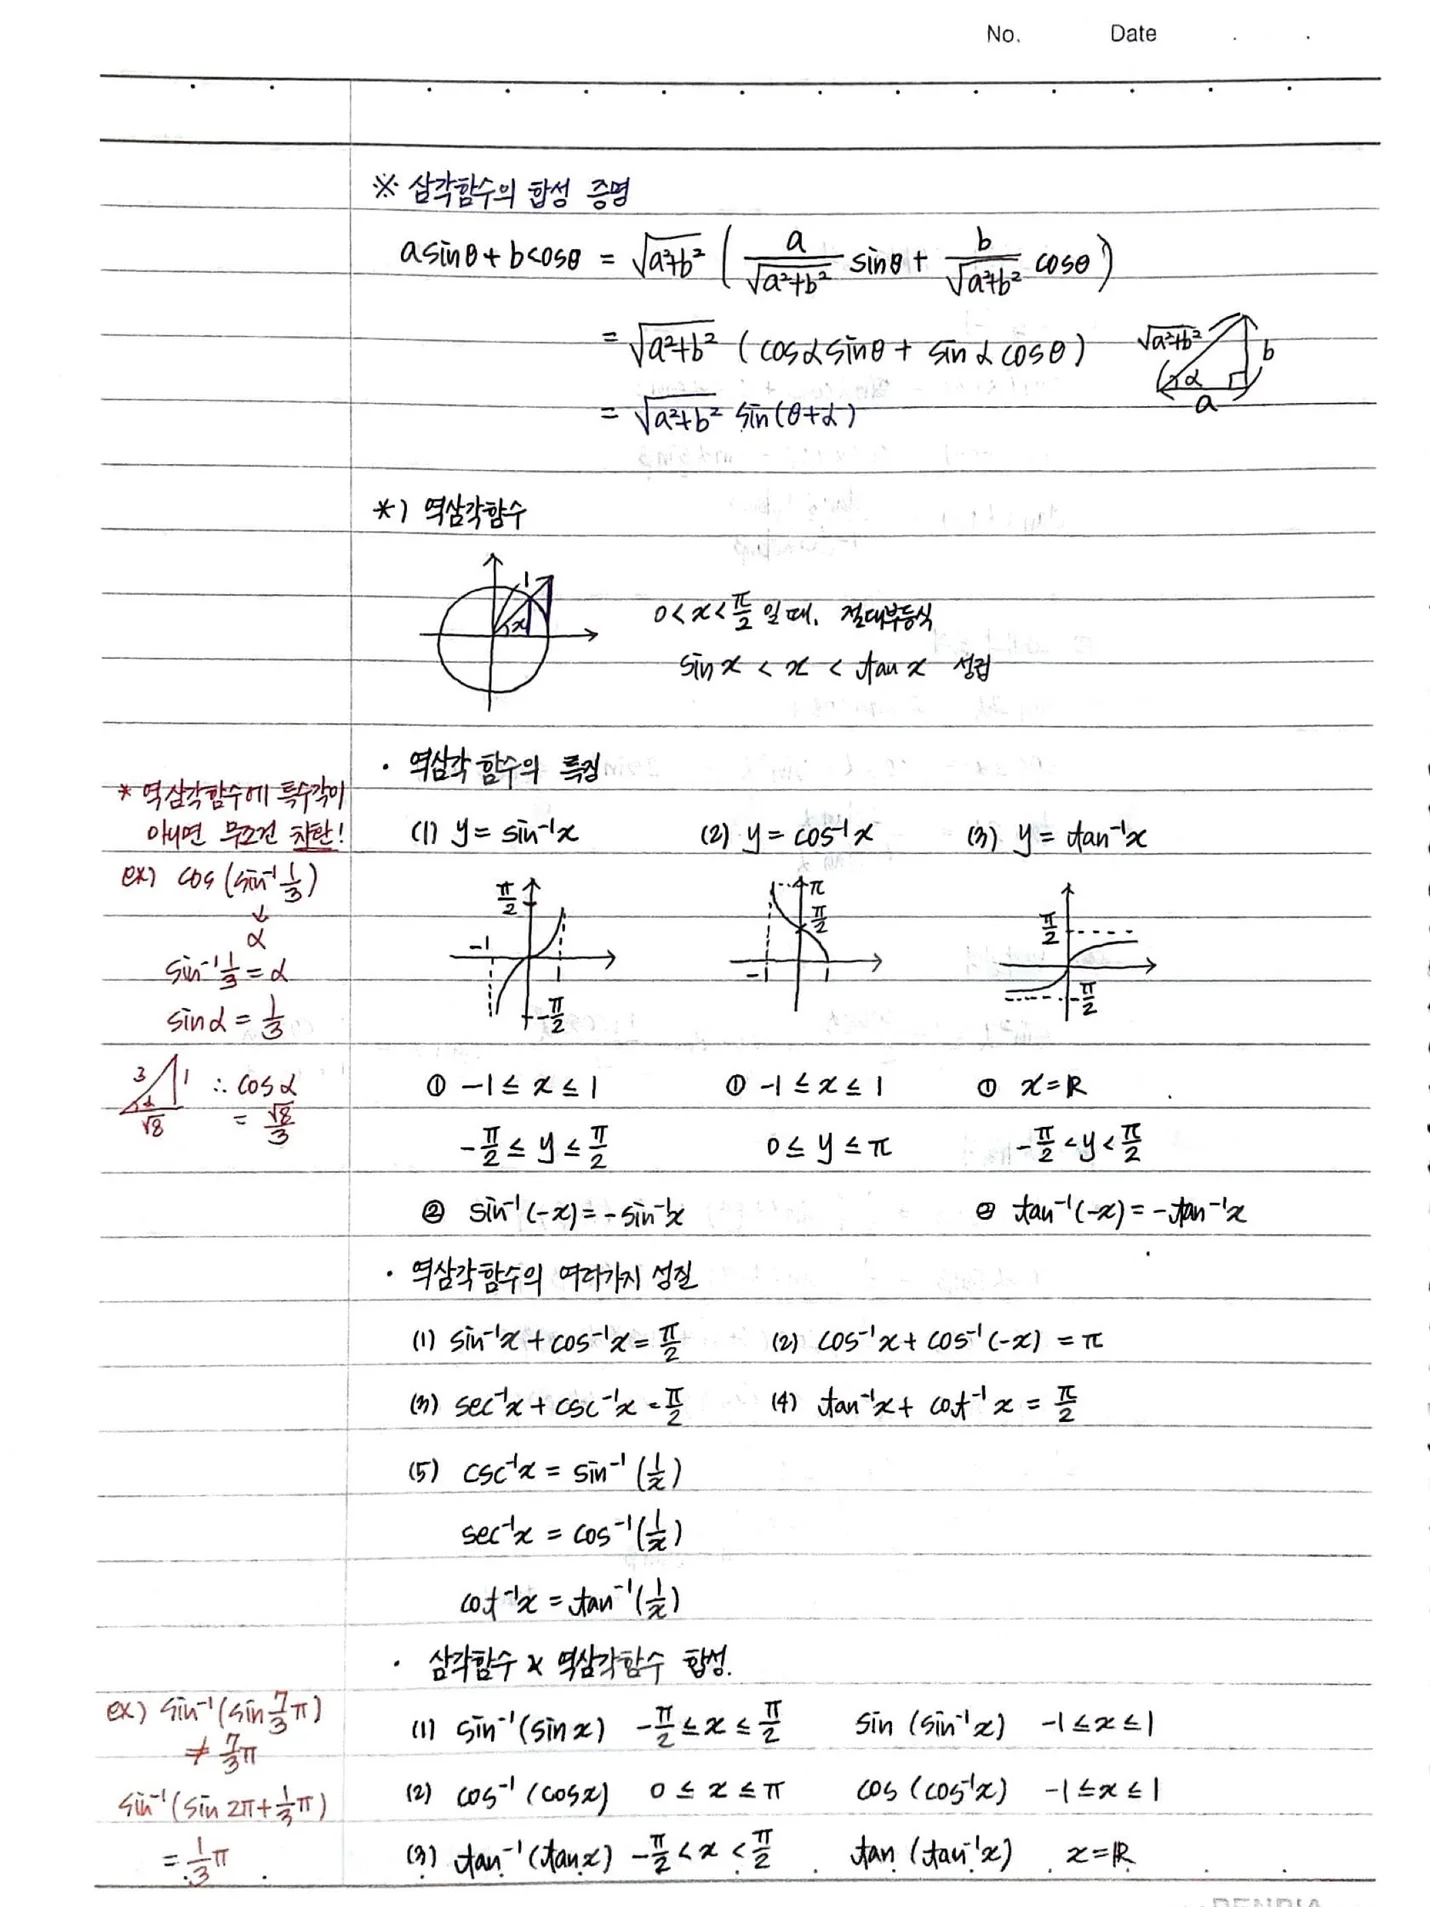 No. Date
※ 삼각함수의 합성 증명
asinθ + bcosθ = √a²+b² ( a/√a²+b² sinθ + b/√a²+b² cosθ )
= √a²+b² ( cosαsinθ + sinαcosθ )
√a²+b² b α a
= √a²+b² sin(θ+α)
*) 역삼각함수
1 x
0 < x < π/2 일 때, 절대부등식
sin x < x < tan x 성립
· 역삼각 함수의 특징
* 역삼각함수에 특수각이
아니면 무조건 치환!
ex) cos (sin⁻¹ 1/3)
↓
α
sin⁻¹ 1/3 = α
sinα = 1/3
3 1 α √8 ∴ cosα
= √8/3
(1) y = sin⁻¹x (2) y = cos⁻¹x (3) y = tan⁻¹x
π/2 -1 1 -π/2
π π/2 -1 1
π/2 -π/2
① -1 ≤ x ≤ 1 ① -1 ≤ x ≤ 1 ① x = ℝ
-π/2 ≤ y ≤ π/2 0 ≤ y ≤ π -π/2 < y < π/2
② sin⁻¹(-x) = -sin⁻¹x ② tan⁻¹(-x) = -tan⁻¹x
· 역삼각함수의 여러가지 성질
(1) sin⁻¹x + cos⁻¹x = π/2 (2) cos⁻¹x + cos⁻¹(-x) = π
(3) sec⁻¹x + csc⁻¹x = π/2 (4) tan⁻¹x + cot⁻¹x = π/2
(5) csc⁻¹x = sin⁻¹(1/x)
sec⁻¹x = cos⁻¹(1/x)
cot⁻¹x = tan⁻¹(1/x)
· 삼각함수 x 역삼각함수 합성.
ex) sin⁻¹(sin 7/3 π)
≠ 7/3 π
sin⁻¹(sin 2π + 1/3 π)
= 1/3 π
(1) sin⁻¹(sin x) -π/2 ≤ x ≤ π/2 sin (sin⁻¹x) -1 ≤ x ≤ 1
(2) cos⁻¹ (cosx) 0 ≤ x ≤ π cos (cos⁻¹x) -1 ≤ x ≤ 1
(3) tan⁻¹(tanx) -π/2 < x < π/2 tan (tan⁻¹x) x = ℝ